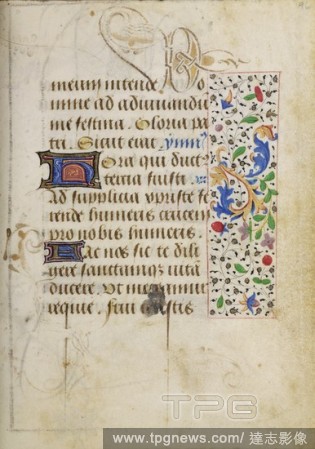 meum intende Do
mine ad adiuuandu
me festina. Gloria pa
tri. Sicut erat ymn'
Hora qui duct
tercia fuisti
Ad supplicia xpriste fe
rende humeris crucem
pro nobis humeris.
Fac nos sic te dili
gere sanctamqz vita
ducere. Vt mereamur
requie. frui celestis
TPG
www.tpgnews.com/ 達志影像